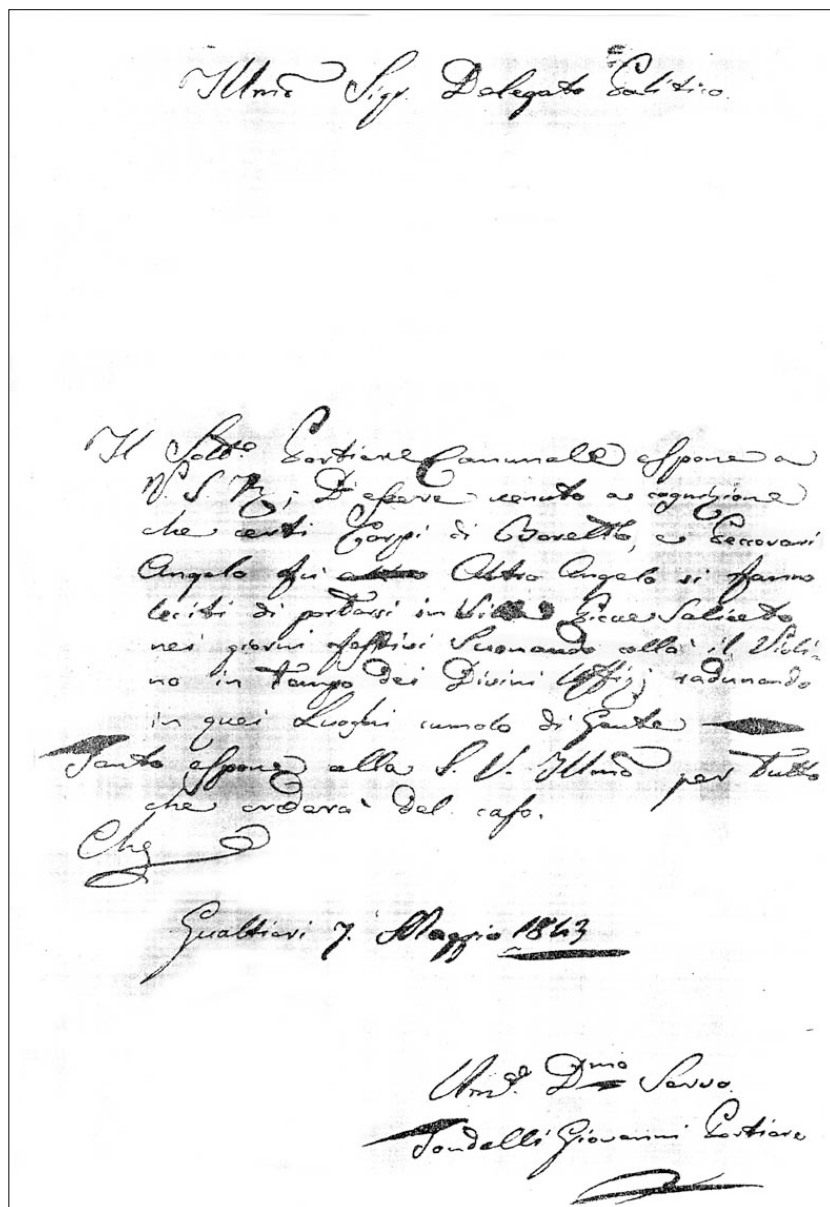 Illmo Sigr. Delegato Politico.
Il Sotto. Portiere Comunale espone a
V. S. Di essere venuto a cognizione
che certi Carpi di Boretto, e Peccorari
Angelo fu Altro Angelo si fanno
leciti di portarsi in Villa Pieve Saliceto
nei giorni festivi Suonando collà il Violi-
no in tempo dei Divini Uffizj radunando
in quei Luoghi cumolo di Gente
Tanto espone alla S. V. Illmo per tutto
che crederà del caso.
Che
Gualtieri 7. Maggio 1843
Umo. Dmo Servo
Tondelli Giovanni Portiere